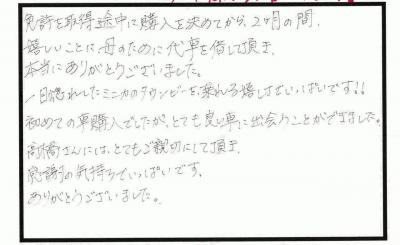 免許を取得途中に購入を決めてから、2ヶ月の間、
嬉しいことに母のために代車を借して頂き、
本当にありがとうございました。
一目惚れしたミニカのラウンビーを乗れる嬉しさでいっぱいです!!
初めての車購入でしたが、とても良い車に出会うことができました。
高橋さんには、とてもご親切にして頂き、
感謝の気持ちでいっぱいです。
ありがとうございました。